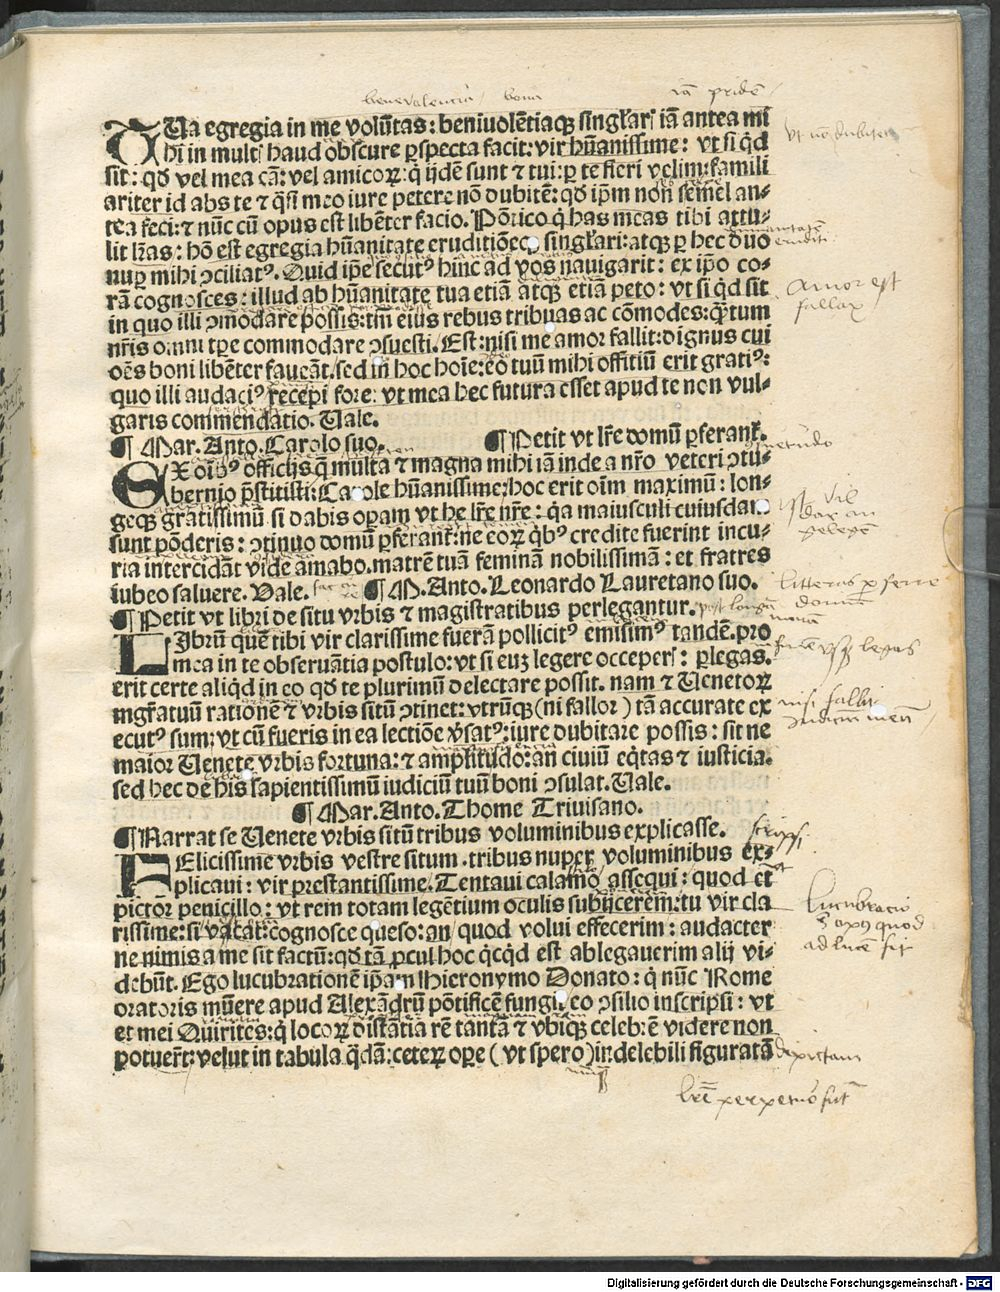 benevolentia / bona iā pridē /
TUa egregia in me volūtas: beniuolētiaqꝫ singlari iā antea mi
hi in multis haud obscure ꝑspecta facit: vir hūanissime: vt si qd
sit: qd vel mea cā: vel amicoꝝ: q ijdē sunt ⁊ tui: ꝑ te fieri velim: famili
ariter id abs te ⁊ qsi meo iure petere nō dubitē: qd ipm non semel an⸗
tea feci: ⁊ nūc cū opus est libēter facio. Pōrico q has meas tibi attu⸗
lit lr̄as: hō est egregia hūanitate eruditiōeqꝫ singlari: atqꝫ ꝑ hec duo
nuꝑ mihi ↄciliatꝰ. Quid ipse secutꝰ hinc ad vos nauigarit: ex ipo co⸗
rā cognosces: illud ab hūanitate tua etiā atqꝫ etiā peto: vt si qd sit
in quo illi ↄmodare possis: tm̄ eius rebus tribuas ac cōmodes: qꝫtum
nr̄is omni tꝑe commodare ↄsuesti. Est: nisi me amor fallit: dignus cui
oēs boni libēter faueāt. sed in hoc hoie: eo tuū mihi offitiū erit gratiꝰ:
quo illi audaciꝰ recepi fore: vt mea hec futura esset apud te non vul⸗
garis commendatio. Uale.
¶ Mar. Anto. Carolo suo. ¶ Petit vt lr̄e domū ꝑferant᷑.
EX oībꝰ officijs q̄ multa ⁊ magna mihi iā inde a nr̄o veteri ↄtu⸗
bernio p̄stitisti: Carole hūanissime: hoc erit oīm maximū: lon⸗
geqꝫ gratissimū si dabis oꝑam vt he lr̄e nr̄e: qa maiusculi cuiusdam
sunt pōderis: ↄtinuo domū ꝑferant᷑: ne eoꝝ qbꝰ credite fuerint incu⸗
ria intercidāt vide amabo. matrē tuā feminam nobilissimā: et fratres
iubeo saluere. Vale. ¶ M. Anto. Leonardo Lauretano suo.
¶ Petit vt libri de situ vrbis ⁊ magistratibus perlegantur.
LIbrū quē tibi vir clarissime fuerā pollicitꝰ emisimꝰ tandē. pro
mea in te obseruātia postulo: vt si euꝫ legere occeperis: ꝑlegas.
erit certe aliqd in eo qd te plurimū delectare possit. nam ⁊ Uenetoꝝ
mgr̄atuū rationē ⁊ vrbis sitū ↄtinet: vtrūqꝫ (ni fallor) tā accurate ex
ecutꝰ sum: vt cū fueris in ea lectiōe v̄satꝰ: iure dubitare possis: sit ne
maior Uenete vrbis fortuna: ⁊ amplitudo: an ciuiū eqtas ⁊ iusticia.
sed hec de his sapientissimū iudiciū tuū boni ↄsulat. Uale.
¶ Mar. Anto. Thome Triuisano.
¶ Narrat se Uenete vrbis sitū tribus voluminibus explicasse.
FElicissime vrbis vestre situm. tribus nuper voluminibus ex⸗
plicaui: vir prestantissime. Tentaui calamo assequi: quod et
pictor penicillo: vt rem totam legētium oculis subijcerem: tu vir cla
rissime: si vacat: cognosce queso: an quod volui effecerim: audacter
ne nimis a me sit factū: qd tā ꝓcul hoc qcqd est ablegauerim alij vi⸗
debūt. Ego lucubrationē ipam Hieronymo Donato: q nūc Rome
oratoris mūere apud Alexādrū pōtificē fungit᷑ eo ↄsilio inscripsi: vt
et mei Quirites: q locoꝝ distātia rē tantā ⁊ vbiqꝫ celebrē videre non
potuer̄t: velut in tabula qdā: ceteꝝ oꝑe (vt spero) indelebili figuratā
vt nō dubitem
amor est
fallax
litteras ꝑ ferre
domum
post longā
moram
nisi fallit
iudiciū meū
scripsi
lucubratio
ē opꝰ quod
ad lucē fit
depictam
brē perpetuo fut
Digitalisierung gefördert durch die Deutsche Forschungsgemeinschaft - DFG